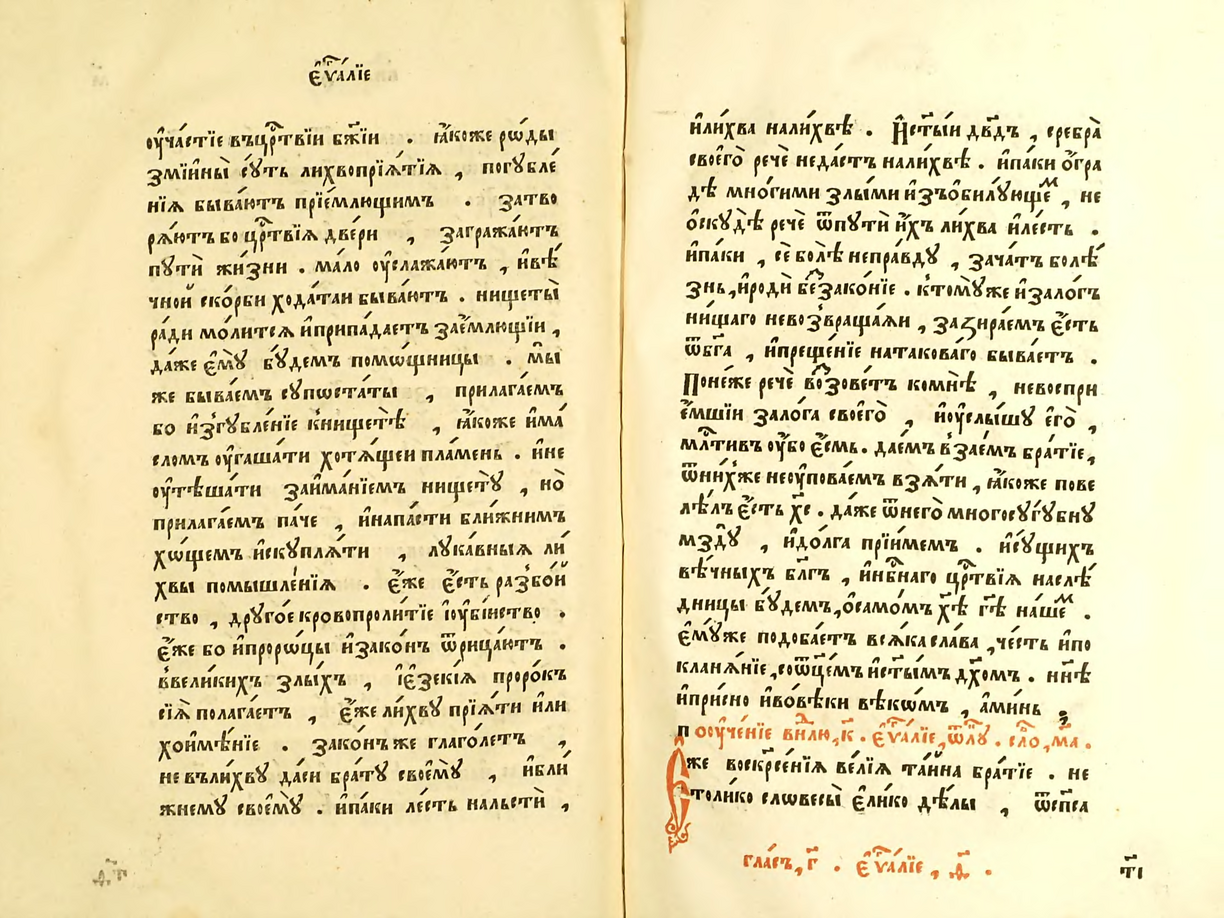 є҆ѵⷢ҇алїе
оу҆ча́стїе въцрⷭ҇твїи бж҃їи . ꙗ҆́коже рѡ́ды
змїи̑ны сꙋ́ть лихвопрїѧ́тїѧ , погꙋбле́
нїѧ быва́ютъ прїе́млющимъ . затво
рѧ́ютъ бо црⷭ҇твїѧ двери , загражда́ютъ
пꙋти̑ жи́зни . ма́ло оу҆слажа́ютъ , и҆вѣ́
чной ско́рби хода́таи быва́ютъ . нищеты̀
ра́ди мо́литсѧ и҆припа́даетъ зае́млющїи ,
да́же є҆мꙋ̀ бꙋ́демъ помѡ́щницы . мы̀
же быва́емъ сꙋпоста́ты , прилага́емъ
бо и҆згꙋбле́нїе книщетѣ̀ , ꙗ҆́коже и҆ма́
сломъ оу҆гаша́ти хотѧ́щеи пла́мень . и҆не
оу҆тѣша́ти займа́нїемъ нищетꙋ̀ , но̀
прилага́емъ па́че , и҆напа́сти бли́жнимъ
хо́щемъ и҆скꙋплѧ́ти , лꙋка́вныѧ ли
хвы помышле́нїѧ . є҆́же є҆́сть разбо́й
ство , дрꙋго́е кровопроли́тїе и҆оу҆бі́нство .
є҆́же бо и҆проро́цы и҆зако́нъ ѿрица́ютъ .
ввели́кихъ злы́хъ , і҆езекі́ѧ проро́къ
сїѧ̀ полага́етъ , є҆́же ли́хвꙋ прїѧ́ти и҆ли
хоимѣ́нїе . зако́нъ же глаго́летъ ,
не въли́хвꙋ да́си бра́тꙋ своемꙋ̀ , и҆бли́
жнемꙋ своемꙋ̀ . и҆па́ки ле́сть нальсти̑ ,
и҆лихва нали́хвѣ . И҆ст҃ы́и дв҃дъ , сребра̀
своего̀ речѐ неда́стъ нали́хвѣ . и҆па́ки о҆гра
дѣ мно́гими злы́ми и҆зъоби́лꙋющеⷨ , не
о҆скꙋдѣ̀ речѐ ѿпꙋти̑ и҆́хъ ли́хва и҆ле́сть .
и҆па́ки , сѐ болѣ̀ непра́вдꙋ , зача́тъ болѣ́
знь , и҆роди̑ беззако́нїе . ктомꙋ́же и҆зало́гъ
ни́щаго невозвраща́ѧи , зазира́емъ є҆́сть
ѿбг҃а , и҆преще́нїе натакова́го быва́етъ .
Поне́же речѐ возове́тъ комнѣ̀ , невоспри
е́мшїи зало́га своего̀ , и҆оу҆слы́шꙋ е҆го̀ ,
млⷭ҇тивъ оу҆́бо є҆́смь . дае́мъ вза́емъ бра́тїе ,
ѿни́хже неоу҆пова́емъ взѧ́ти , ꙗ҆́коже пове
лѣ́лъ є҆́сть хс҃ . да́же ѿнего̀ многосꙋгꙋ́бнꙋ
мздꙋ̀ , и҆до́лга прїи́мемъ . и҆сꙋ́щихъ
вѣ́чныхъ бл҃гъ , и҆нбⷭ҇наго црⷭ҇твїѧ наслѣ́
дницы бꙋ́демъ , о҆само́мъ хⷭ҇ѣ гдⷭ҇ѣ на́шеⷨ .
є҆мꙋ́же подоба́етъ всѧ́ка сла́ва , че́сть и҆по
кланѧ́нїе , соѿц҃е́мъ и҆ст҃ы́мъ дх҃омъ . нн҃ѣ
и҆при́сно и҆вовѣ́ки вѣкѡ́мъ , а҆ми́нь .
поуч҆е́нїе внⷣлю , к҃ . є҆ѵⷢ҇алїе , ѿлꙋ . сло , ма .
Е҆́же воскрⷭ҇е́нїѧ ве́лїѧ та́йна бра́тїе . не
то́лико словесы̀ є҆ли́ко дѣ́лы , ѿсп҃са
гла́съ , г҃ . є҆ѵⷢ҇алїе , д҃ .
т҃і